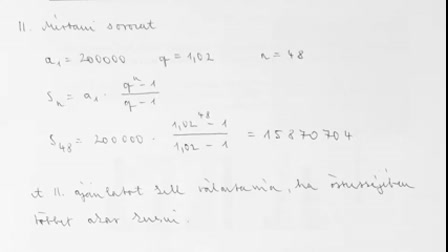 II. Mértani sorozat
a₁ = 200000 q = 1,02 n = 48
Sₙ = a₁ · (qⁿ - 1)/(q - 1)
S₄₈ = 200000 · (1,02⁴⁸ - 1)/(1,02 - 1) = 15870704
A II. ajánlatot kell választania, ha összességében
többet akar keresni.